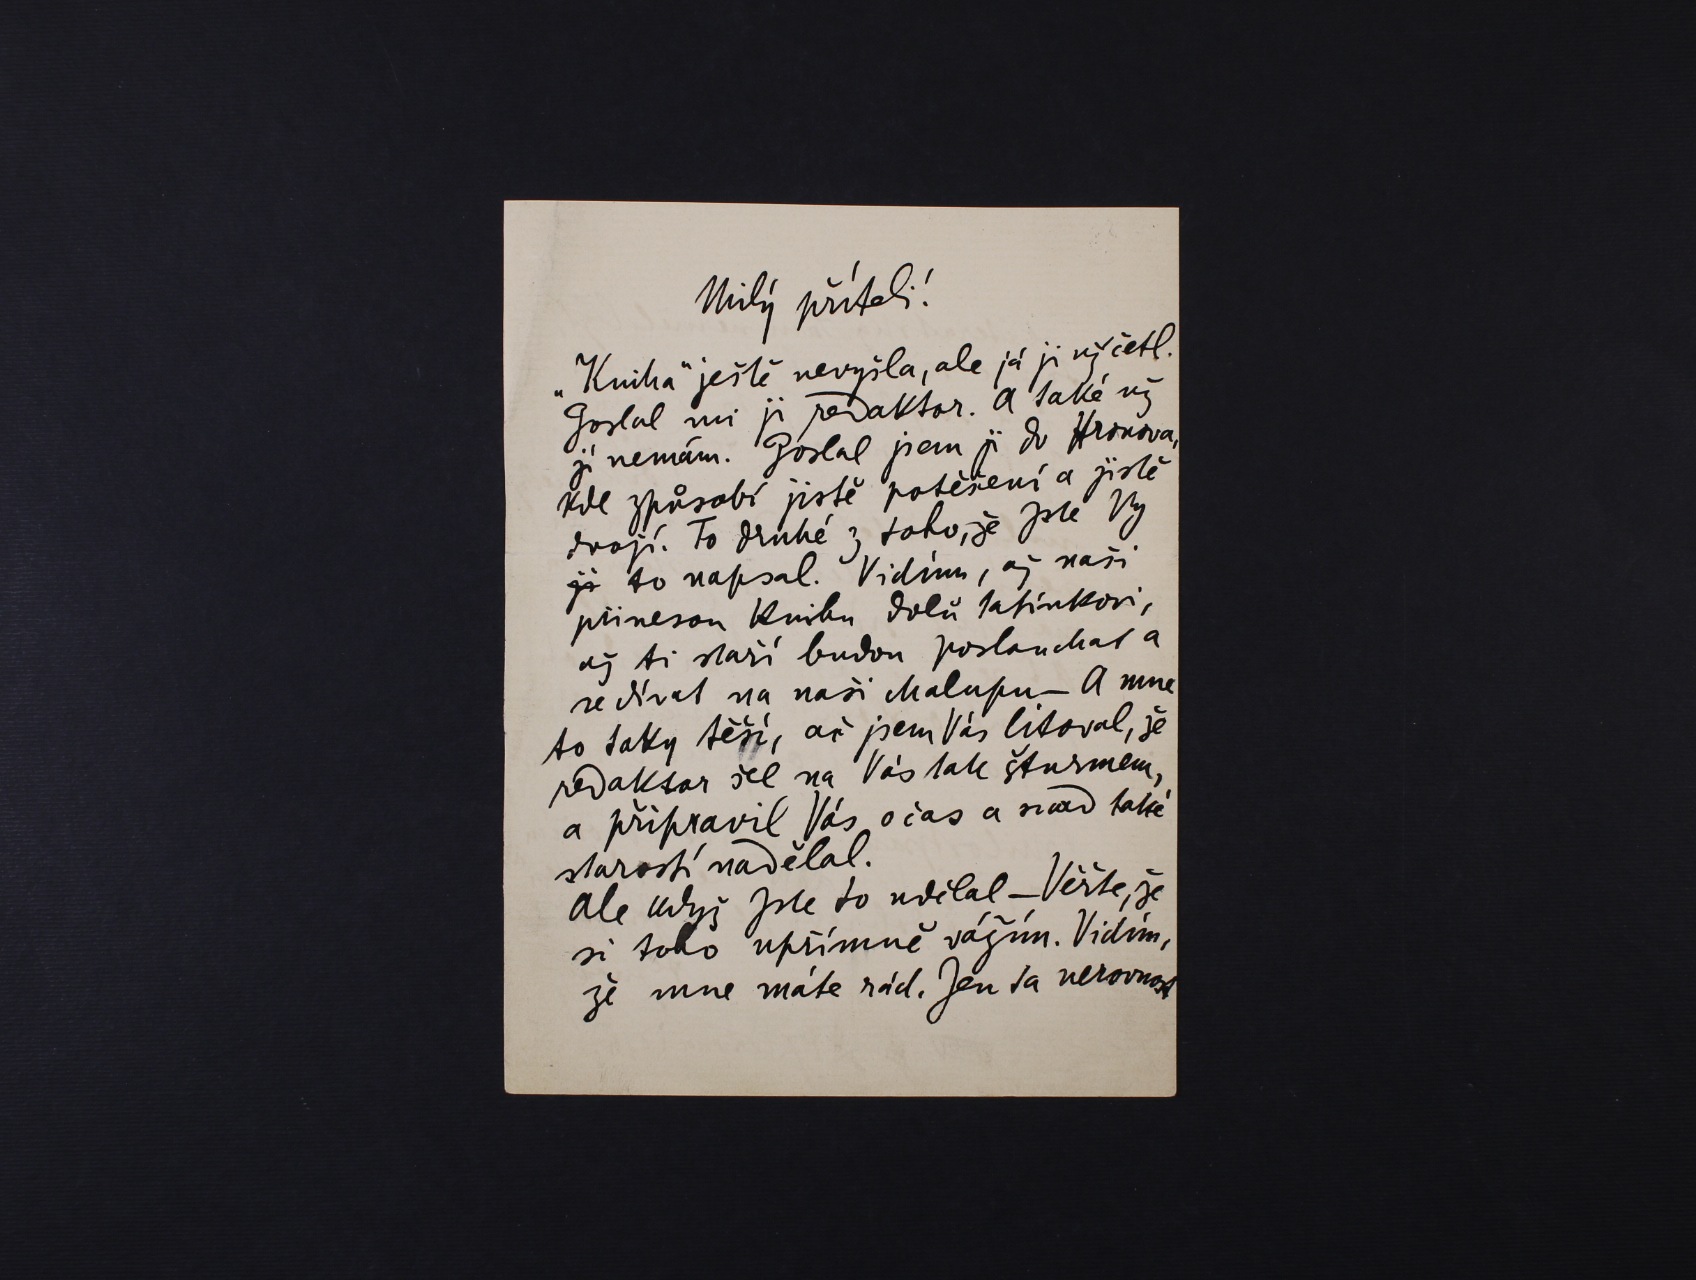 Milý příteli!
„Kniha" ještě nevyšla, ale já ji už četl.
Poslal mi ji redaktor. A také už
ji nemám. Poslal jsem ji do Hronova,
kde způsobí jistě potěšení a jistě
dvojí. To druhé z toho, že jste Vy
to napsal. Vidím, až naši
přinesou Knihu dolů tatínkovi,
až ti staří budou poslouchat a
se dívat na naši chalupu — A mne
to taky těší, ač jsem Vás litoval, že
redaktor šel na Vás tak šturmem,
a připravil Vás o čas a snad také
starostí nadělal.
Ale když jste to udělal — Věřte, že
si toho upřímně vážím. Vidím,
že mne máte rád. Jen ta nerovnost